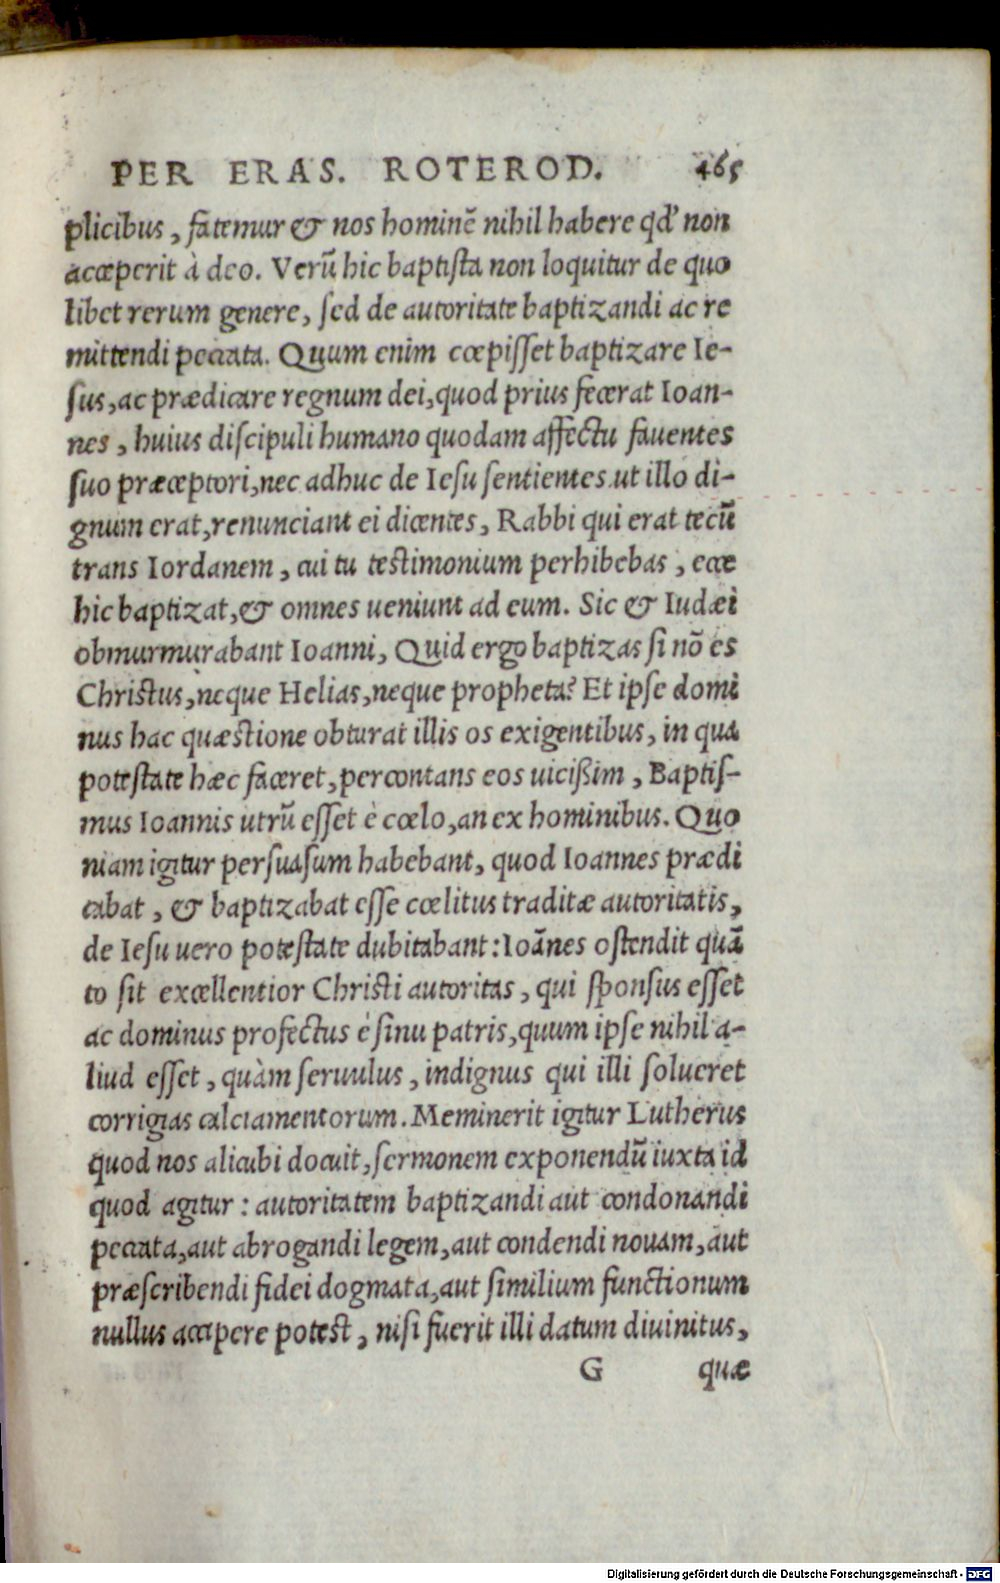 PER ERAS. ROTEROD. 465
plicibus, fatemur & nos hominē nihil habere qđ non
acceperit à deo. Verū hic baptista non loquitur de quo
libet rerum genere, sed de autoritate baptizandi ac re
mittendi peccata. Quum enim cœpisset baptizare Ie-
sus, ac prædicare regnum dei, quod prius fecerat Ioan-
nes, huius discipuli humano quodam affectu fauentes
suo præceptori, nec adhuc de Iesu sentientes ut illo di-
gnum erat, renunciant ei dicentes, Rabbi qui erat tecū
trans Iordanem, cui tu testimonium perhibebas, ecce
hic baptizat, & omnes ueniunt ad eum. Sic & Iudæi
obmurmurabant Ioanni, Quid ergo baptizas si nō es
Christus, neque Helias, neque propheta? Et ipse domi
nus hac quæstione obturat illis os exigentibus, in qua
potestate hæc faceret, percontans eos uicißim, Baptis-
mus Ioannis utrū esset è cœlo, an ex hominibus. Quo
niam igitur persuasum habebant, quod Ioannes prædi
cabat, & baptizabat esse cœlitus traditæ autoritatis,
de Iesu uero potestate dubitabant: Ioānes ostendit quā
to sit excellentior Christi autoritas, qui sponsus esset
ac dominus profectus è sinu patris, quum ipse nihil a-
liud esset, quàm seruulus, indignus qui illi solueret
corrigias calciamentorum. Meminerit igitur Lutherus
quod nos alicubi docuit, sermonem exponendū iuxta id
quod agitur: autoritatem baptizandi aut condonandi
peccata, aut abrogandi legem, aut condendi nouam, aut
præscribendi fidei dogmata, aut similium functionum
nullus accipere potest, nisi fuerit illi datum diuinitus,
G quæ
Digitalisierung gefördert durch die Deutsche Forschungsgemeinschaft - DFG